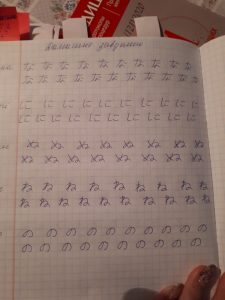 Домашнє завдання
な な な な な な な な な
な な な な な な な な な
に に に に に に に に に
に に に に に に に に に
ぬ ぬ ぬ ぬ ぬ ぬ ぬ ぬ
ぬ ぬ ぬ ぬ ぬ ぬ ぬ ぬ
ね ね ね ね ね ね ね ね
ね ね ね ね ね ね ね ね ね
の の の の の の の の の の
の の の の の の の の の の